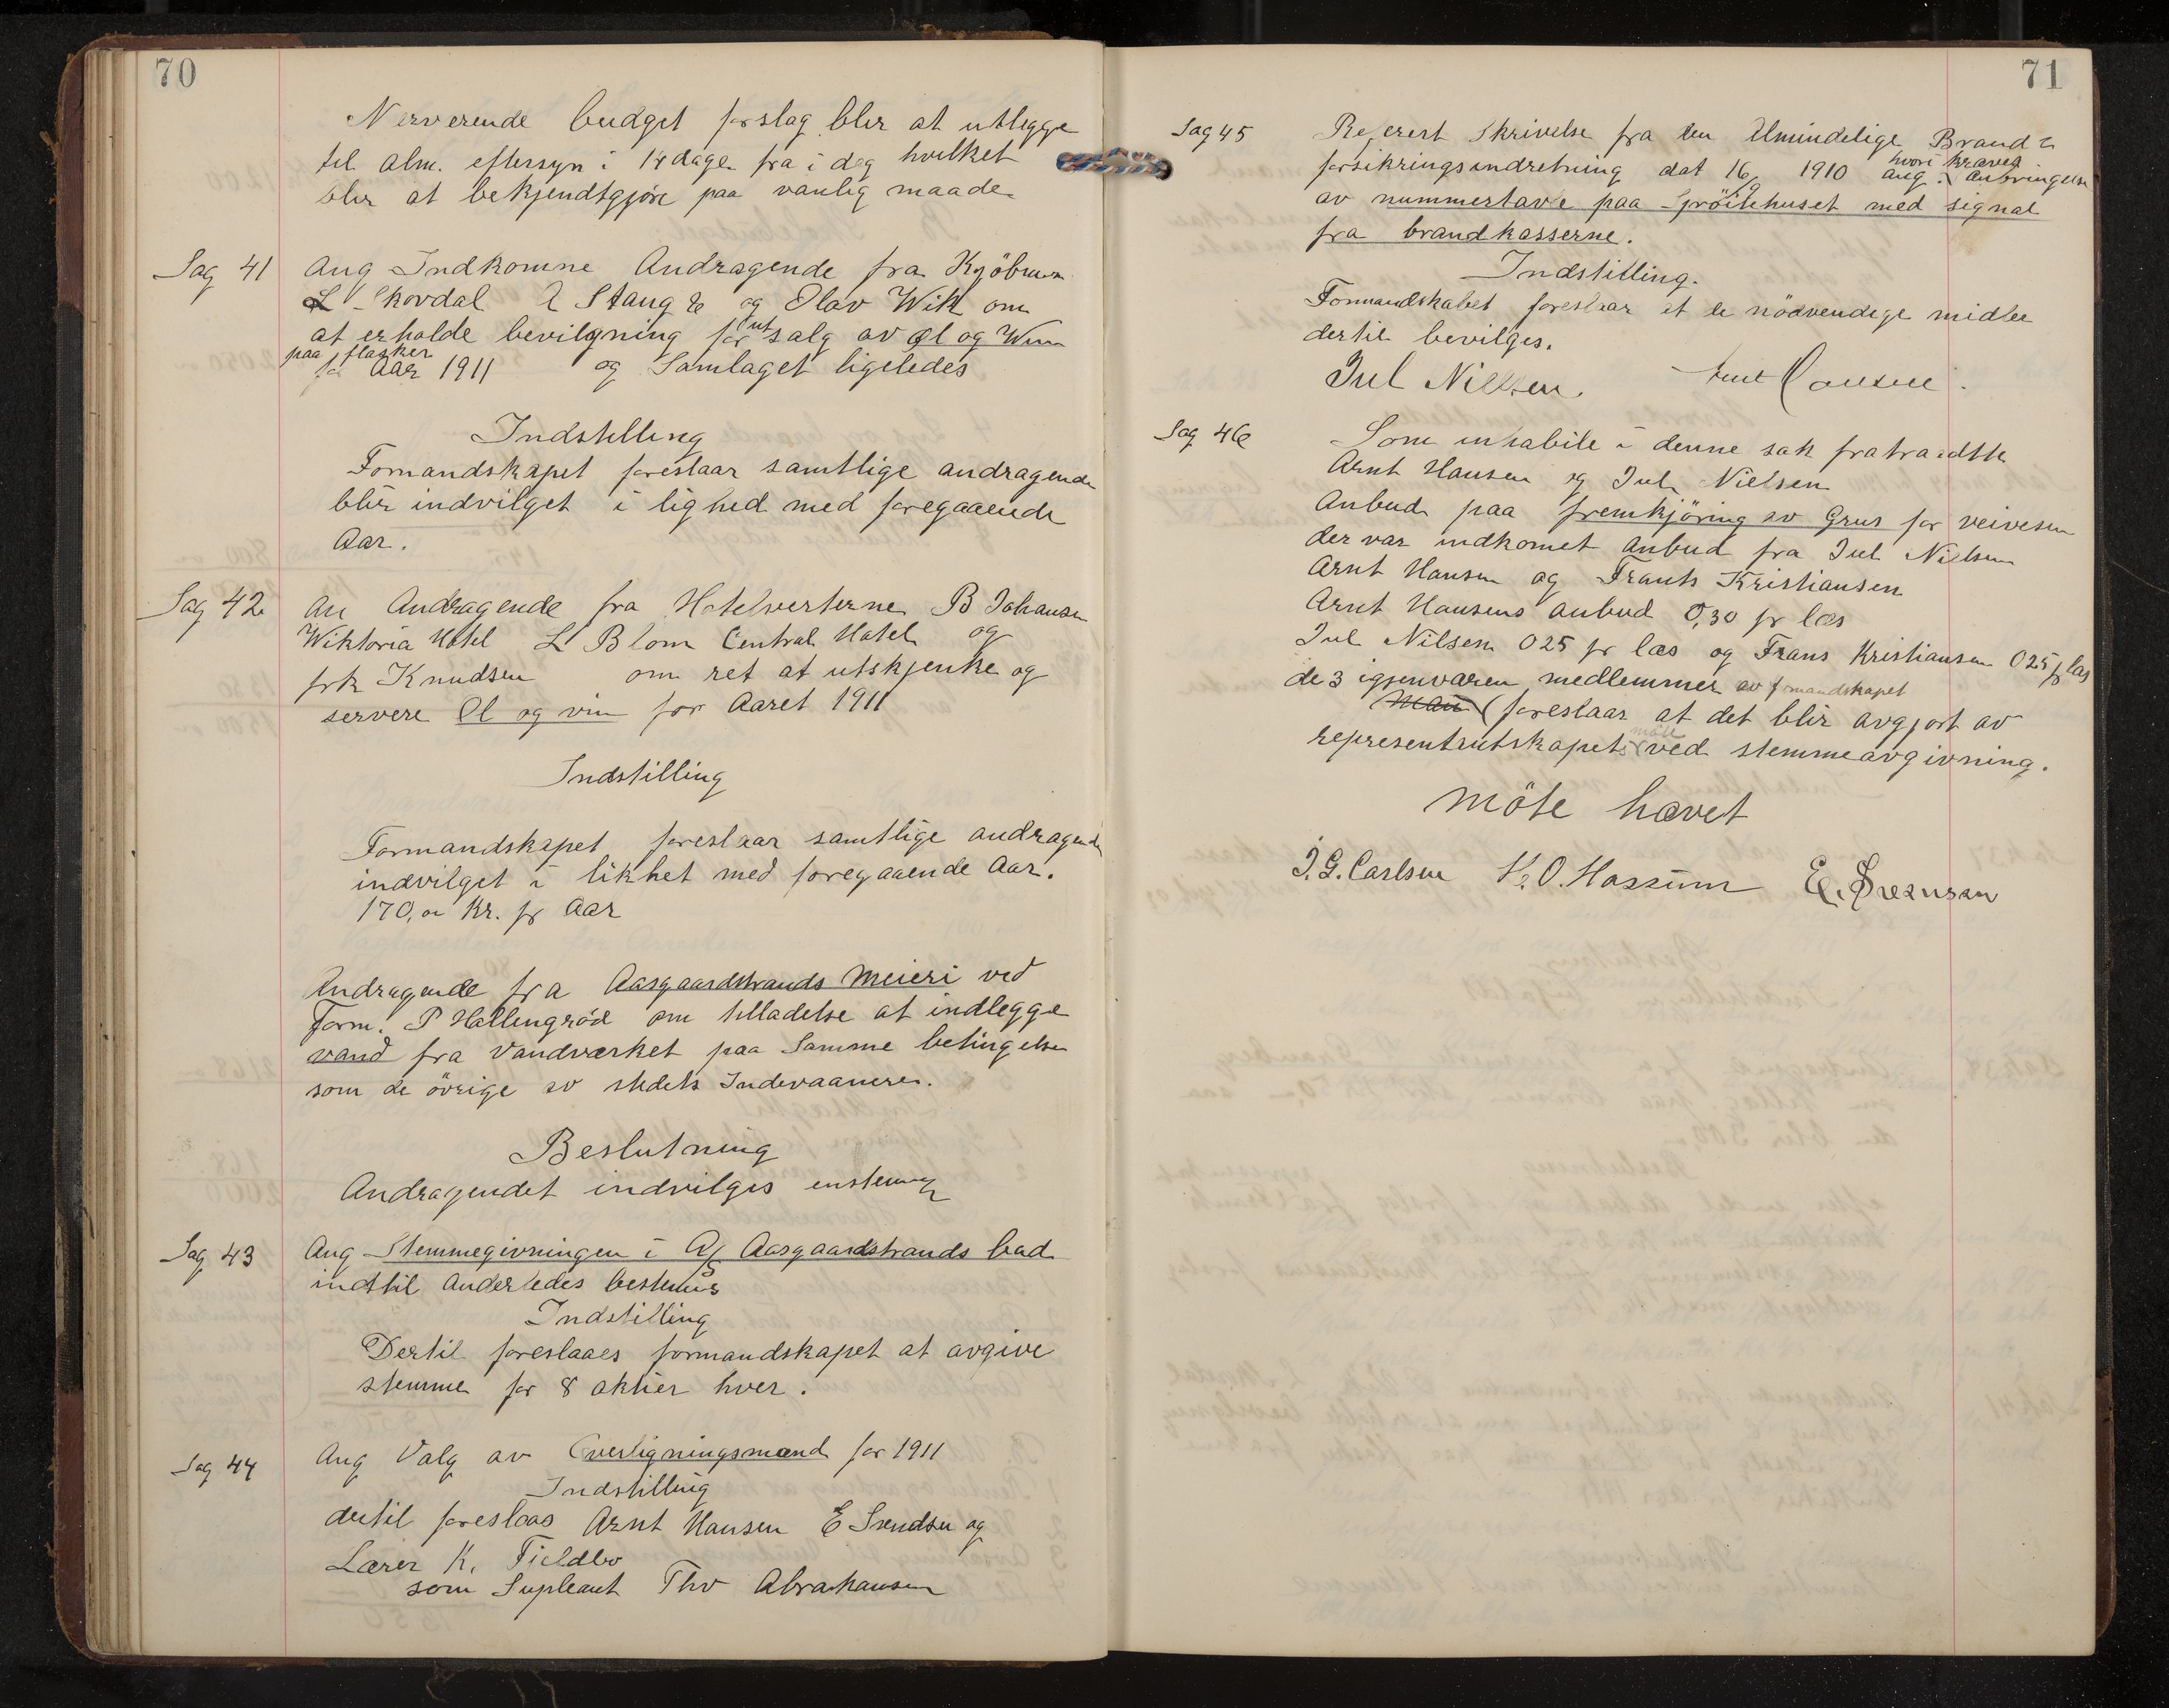 70
Nerverende budget forslag blir at utlegge
til alm. eftersyn i 14 dage fra i dag hvilket
blir at bekjendtgjøre paa vanlig maade
Sag 41
Ang Indkomne Andragende fra Kjöbm
L Skovdal Stang og Olav Wik om
at erholde bevilgning for utsalg av øl og Win
paa flasker
for Aar 1911 og Samlaget ligeledes
Indstilling
Formandskapet foreslaar samtlige andragende
blir indvilget i lighed med foregaaende
Aar.
Sag 42
An Andragende fra Hotelverterne B Johansen
Wiktoria Hotel L Blom Central Hotel og
frk Knudsen om ret at utskjenke og
servere Øl og vin for Aaret 1911
Indstilling
Formandskapet foreslaar samtlige andragende
indvilget i likhet med foregaaende Aar.
170, Kr. pr Aar
Andragende fra Aasgaardstrands Meieri ved
Form. P Hallengröd om tilladelse at indlegge
vand fra Vandværket paa Samme betingelse
som de övrige av stedets Indevaanere.
Beslutning
Andragendet indvilges enstemig
Sag 43
Ang Stemmegivningen i A/S Aasgaardstrands bad
indtil Anderledes bestemes
Indstilling
Dertil foreslaaes formandskapet at avgive
stemme for 8 aktier hver.
Sag 44
Ang Valg av Overligningsmænd for 1911
Indstilling
dertil foreslaas Arnt Hansen E Svendsen og
Lærer K. Fieldbo
som Supleant Thv Abrahamsen
71
Sag 45
Referert Skrivelse fra den Almindelige Brand
forsikringsindretning dat 16/9 1910 ang. hvori kræves anbringelse
av nummertavle paa Spröitehuset med signal
fra brandkasserne.
Indstilling.
Formandskabet foreslaar at de nödvendige midler
dertil bevilges.
Jul Nielsen. Arnt Hansen.
Sag 46
Som inhabile i denne sak fratraadtte
Arnt Hansen og Jul Nielsen
Anbud paa fremkjöring av Grus for veivesen
der var indkomet anbud fra Jul Nielsen
Arnt Hansen og Frants Kristiansen
Arnt Hansens anbud 0,30 pr læs
Jul Nilsen 025 pr læs og Frans Kristiansen 025 pr læs
de 3 igjenværen medlemmer av formandskapet
Man foreslaar at det blir avgjort av
representantskapets möte ved stemmeavgivning.
Möte hævet
J.G. Carlsen K.O. Hassum E. Svensen